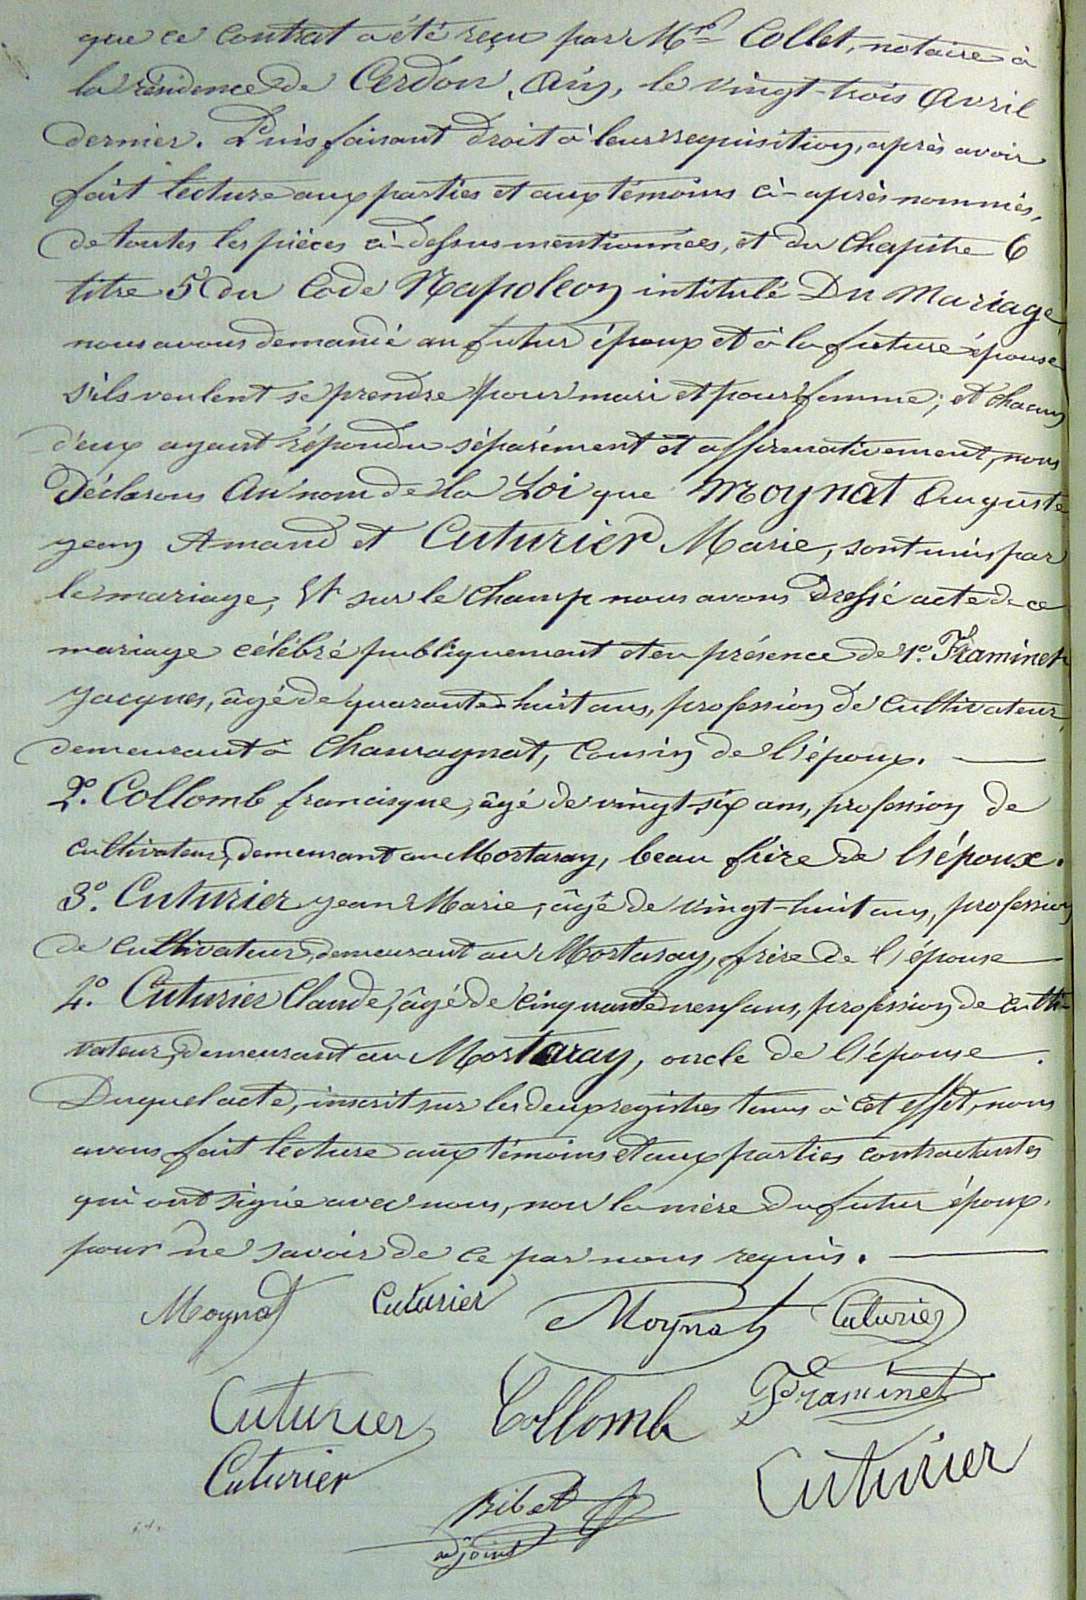 que ce contrat a été reçu par Mre Collet, notaire à
la résidence de Cerdon, Ain, le vingt-trois avril
dernier. Puis faisant droit à leur requisition, après avoir
fait lecture aux parties et aux témoins ci-après nommés,
de toutes les pièces ci-dessus mentionnées, et du chapitre 6
titre 5 du Code Napoléon intitulé Du Mariage
nous avons demandé au futur époux et à la future épouse
s'ils veulent se prendre pour mari et pour femme; et chacun
d'eux ayant répondu séparément et affirmativement, nous
Déclarons au nom de la Loi que Moynat Auguste
Jean Amand et Cuturier Marie, sont unis par
le mariage, Et sur le champ nous avons dressé acte de ce
mariage célébré publiquement et en présence de 1o. Framinet
Jacques, âgé de quarante-huit ans, profession de cultivateur,
demeurant à Chamagnat, cousin de l'époux.
2o. Collomb francisque, âgé de vingt-six ans, profession de
cultivateur, demeurant au Mortaray, beau frère de l'époux.
3o. Cuturier Jean Marie, âgé de vingt-huit ans, profession
de cultivateur, demeurant au Mortaray, frère de l'épouse
4o. Cuturier Claude, âgé de cinquante neuf ans, profession de culti-
vateur, demeurant au Mortaray, oncle de l'épouse.
Duquel acte, inscrit sur les deux registres tenus à cet effet, nous
avons fait lecture aux témoins et aux parties contractantes
qui ont signé avec nous, non la mère du futur époux.
pour ne savoir de ce par nous requis.
Moynat Cuturier Moynat Cuturier
Cuturier Collomb Framinet
Cuturier Cuturier
Ribet
adjoint